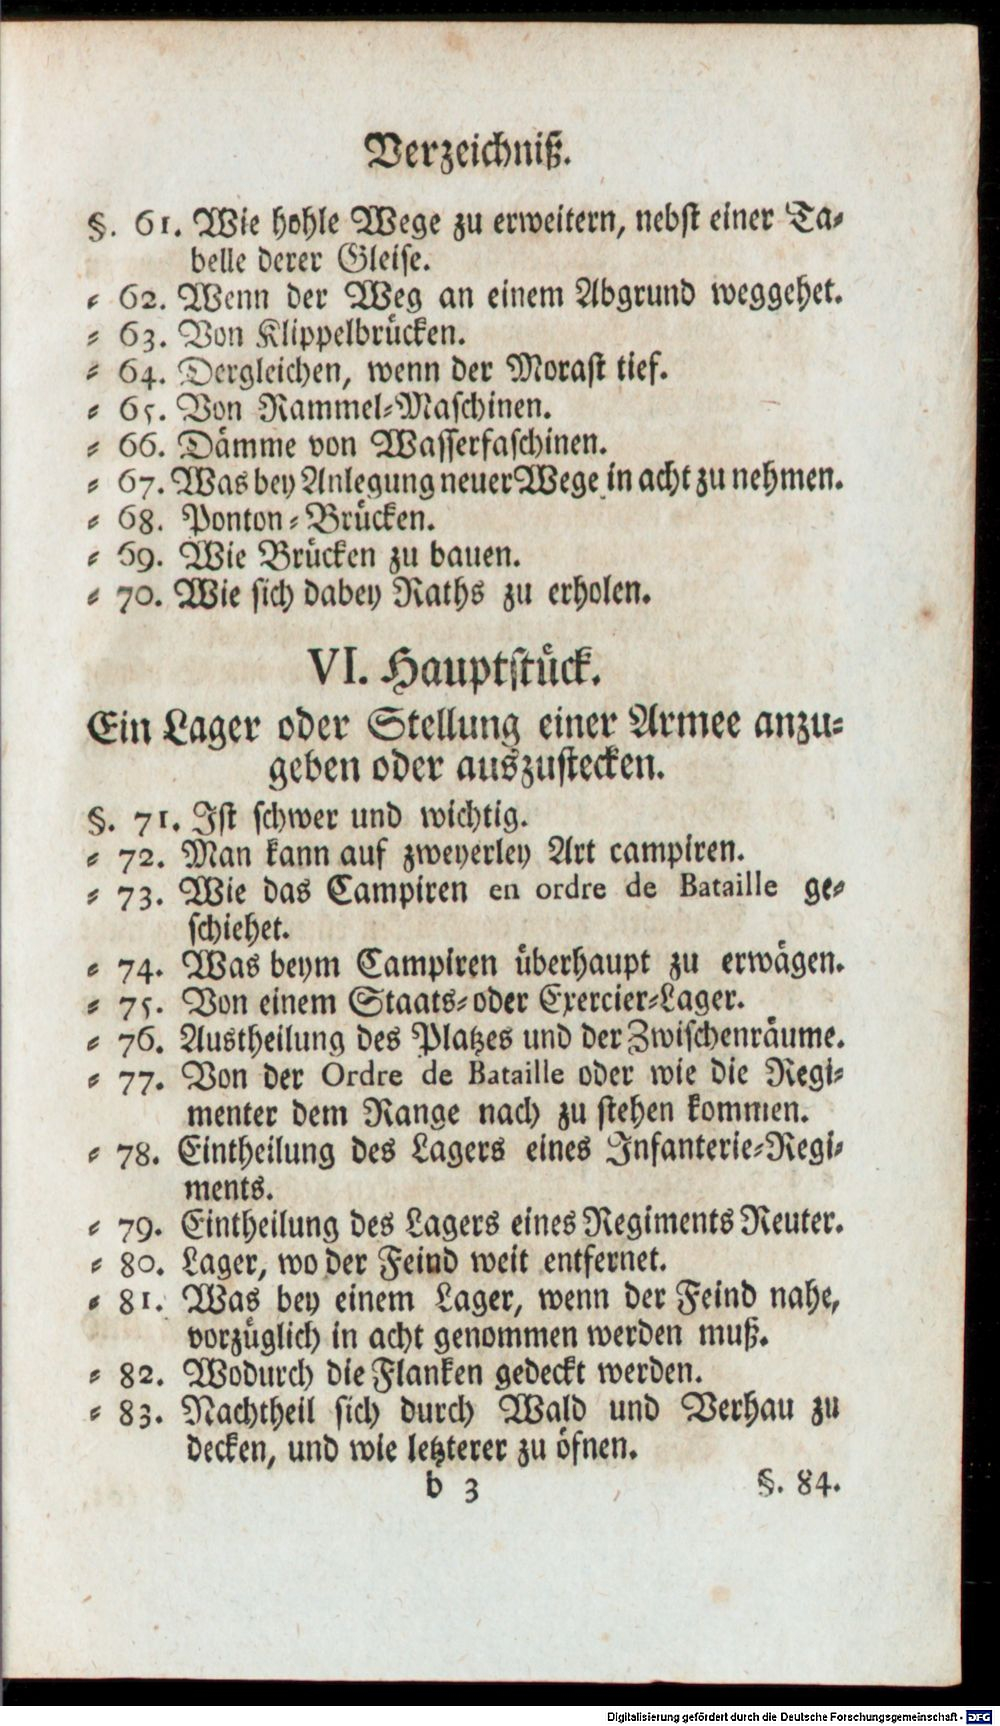 Verzeichniß.
§. 61. Wie hohle Wege zu erweitern, nebst einer Ta⸗
belle derer Gleise.
⸗ 62. Wenn der Weg an einem Abgrund weggehet.
⸗ 63. Von Klippelbrücken.
⸗ 64. Dergleichen, wenn der Morast tief.
⸗ 65. Von Rammel⸗Maschinen.
⸗ 66. Dämme von Wasserfaschinen.
⸗ 67. Was bey Anlegung neuer Wege in acht zu nehmen.
⸗ 68. Ponton⸗Brücken.
⸗ 69. Wie Brücken zu bauen.
⸗ 70. Wie sich dabey Raths zu erholen.
VI. Hauptstück.
Ein Lager oder Stellung einer Armee anzu⸗
geben oder auszustecken.
§. 71. Ist schwer und wichtig.
⸗ 72. Man kann auf zweyerley Art campiren.
⸗ 73. Wie das Campiren en ordre de Bataille ge⸗
schiehet.
⸗ 74. Was beym Campiren überhaupt zu erwägen.
⸗ 75. Von einem Staats⸗ oder Exercier⸗Lager.
⸗ 76. Austheilung des Platzes und der Zwischenräume.
⸗ 77. Von der Ordre de Bataille oder wie die Regi⸗
menter dem Range nach zu stehen kommen.
⸗ 78. Eintheilung des Lagers eines Infanterie⸗Regi⸗
ments.
⸗ 79. Eintheilung des Lagers eines Regiments Reuter.
⸗ 80. Lager, wo der Feind weit entfernet.
⸗ 81. Was bey einem Lager, wenn der Feind nahe,
vorzüglich in acht genommen werden muß.
⸗ 82. Wodurch die Flanken gedeckt werden.
⸗ 83. Nachtheil sich durch Wald und Verhau zu
decken, und wie letzterer zu öfnen.
b 3 §. 84.
Digitalisierung gefördert durch die Deutsche Forschungsgemeinschaft - DFG